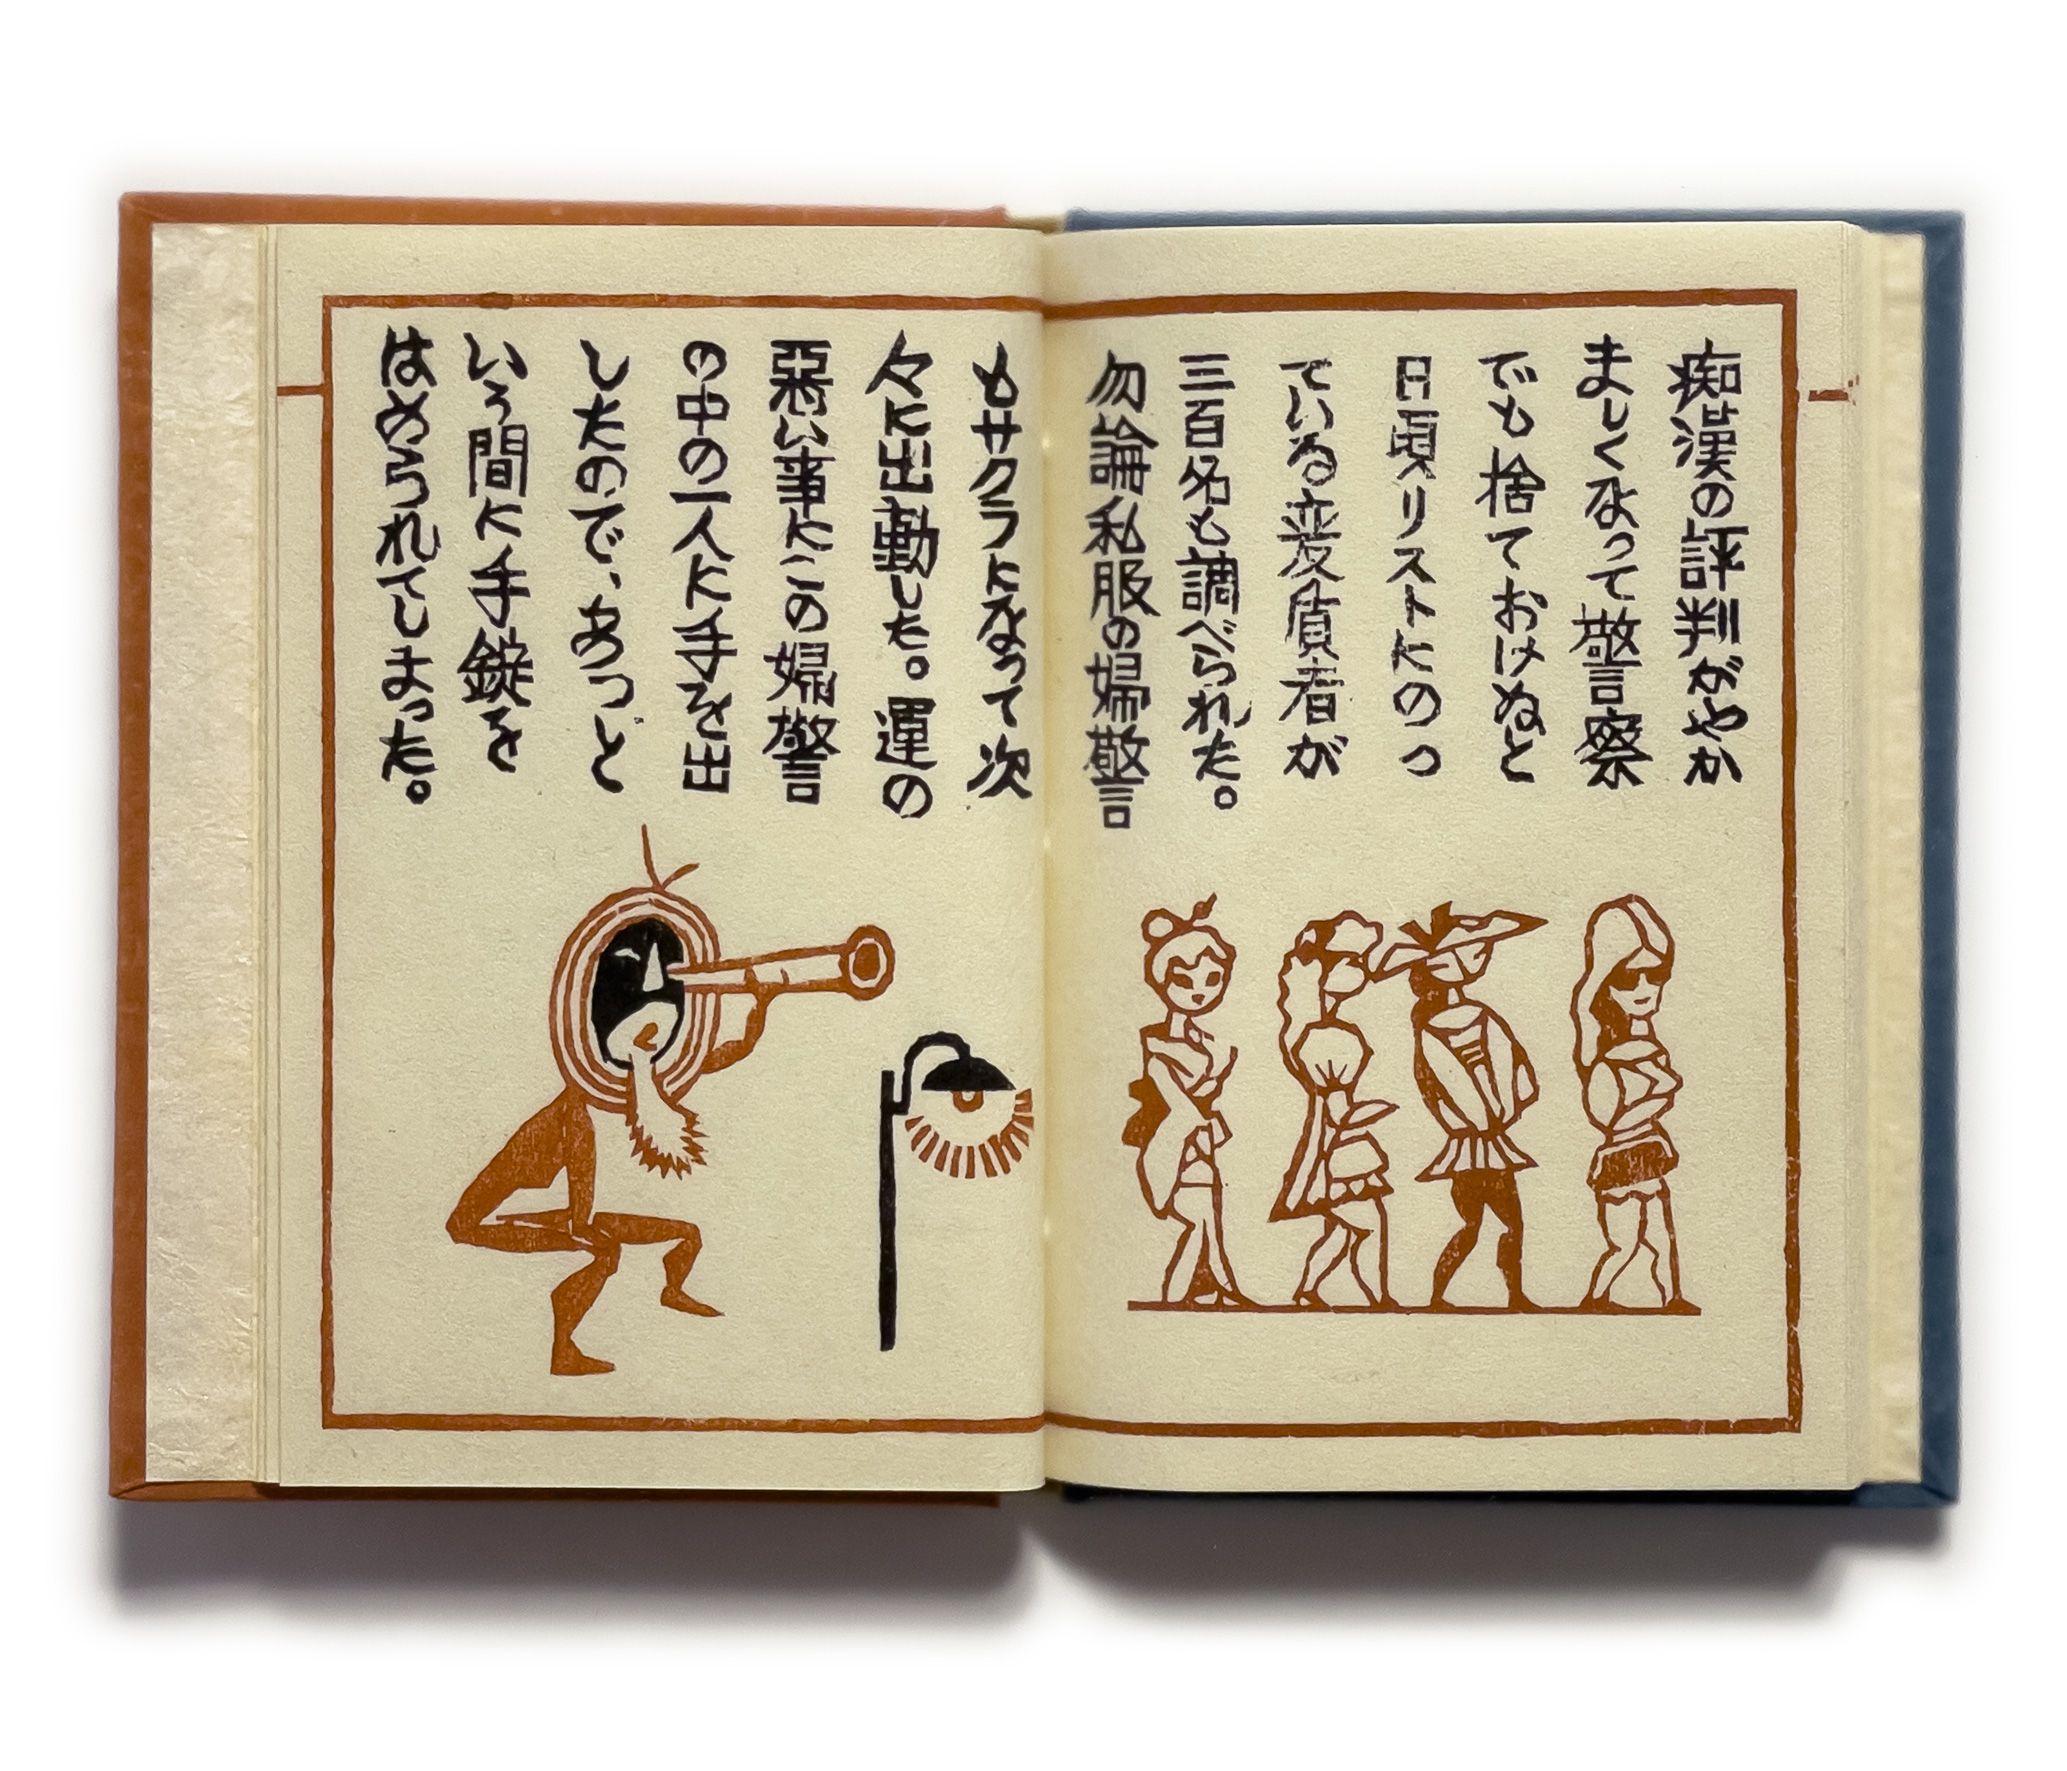 痴漢の評判がやか
ましくなって警察
でも捨てておけぬと
日頃リストにのっ
ている変質者が
三百名も調べられた。
勿論私服の婦警
もサクラになって次
々に出動した。運の
惡い事にこの婦警
の中の一人に手を出
したので、あっと
いう間に手錠を
はめられてしまった。